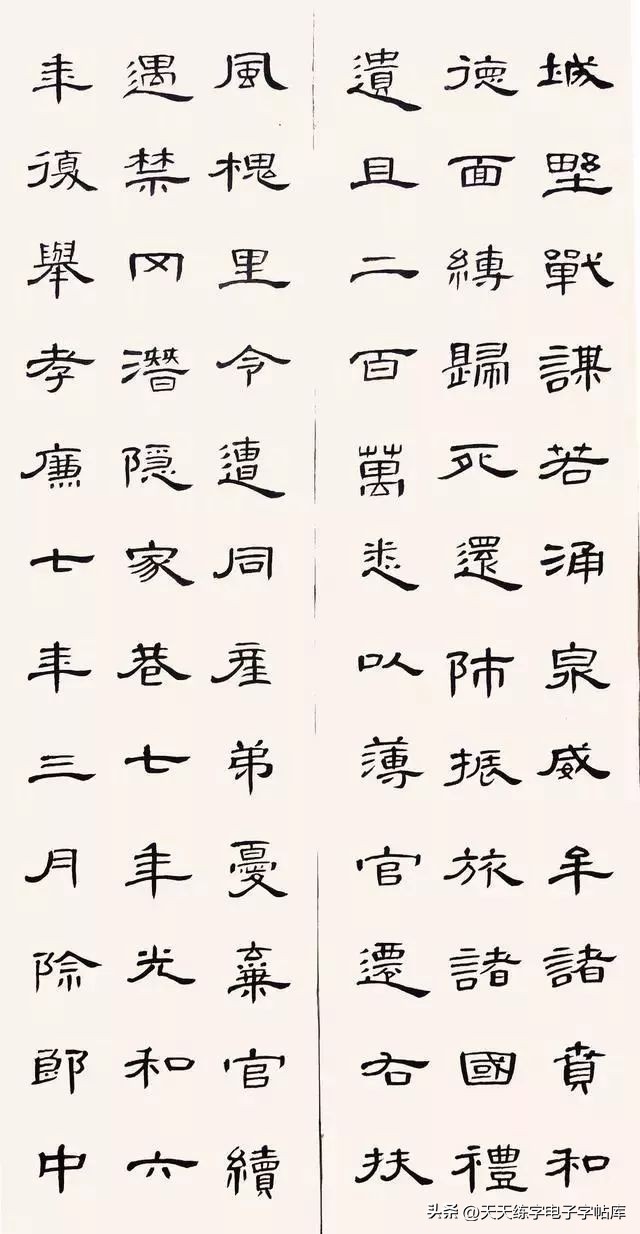 城野戰謀若涌泉威牟諸賁和
德面縛歸死還師振旅諸國禮
遺且二百萬悉以薄官遷右扶
風槐里令遭同產弟憂棄官續
遇禁冈潛隱家巷七年光和六
年復舉孝廉七年三月除郎中
头条 @天天练字电子字帖库